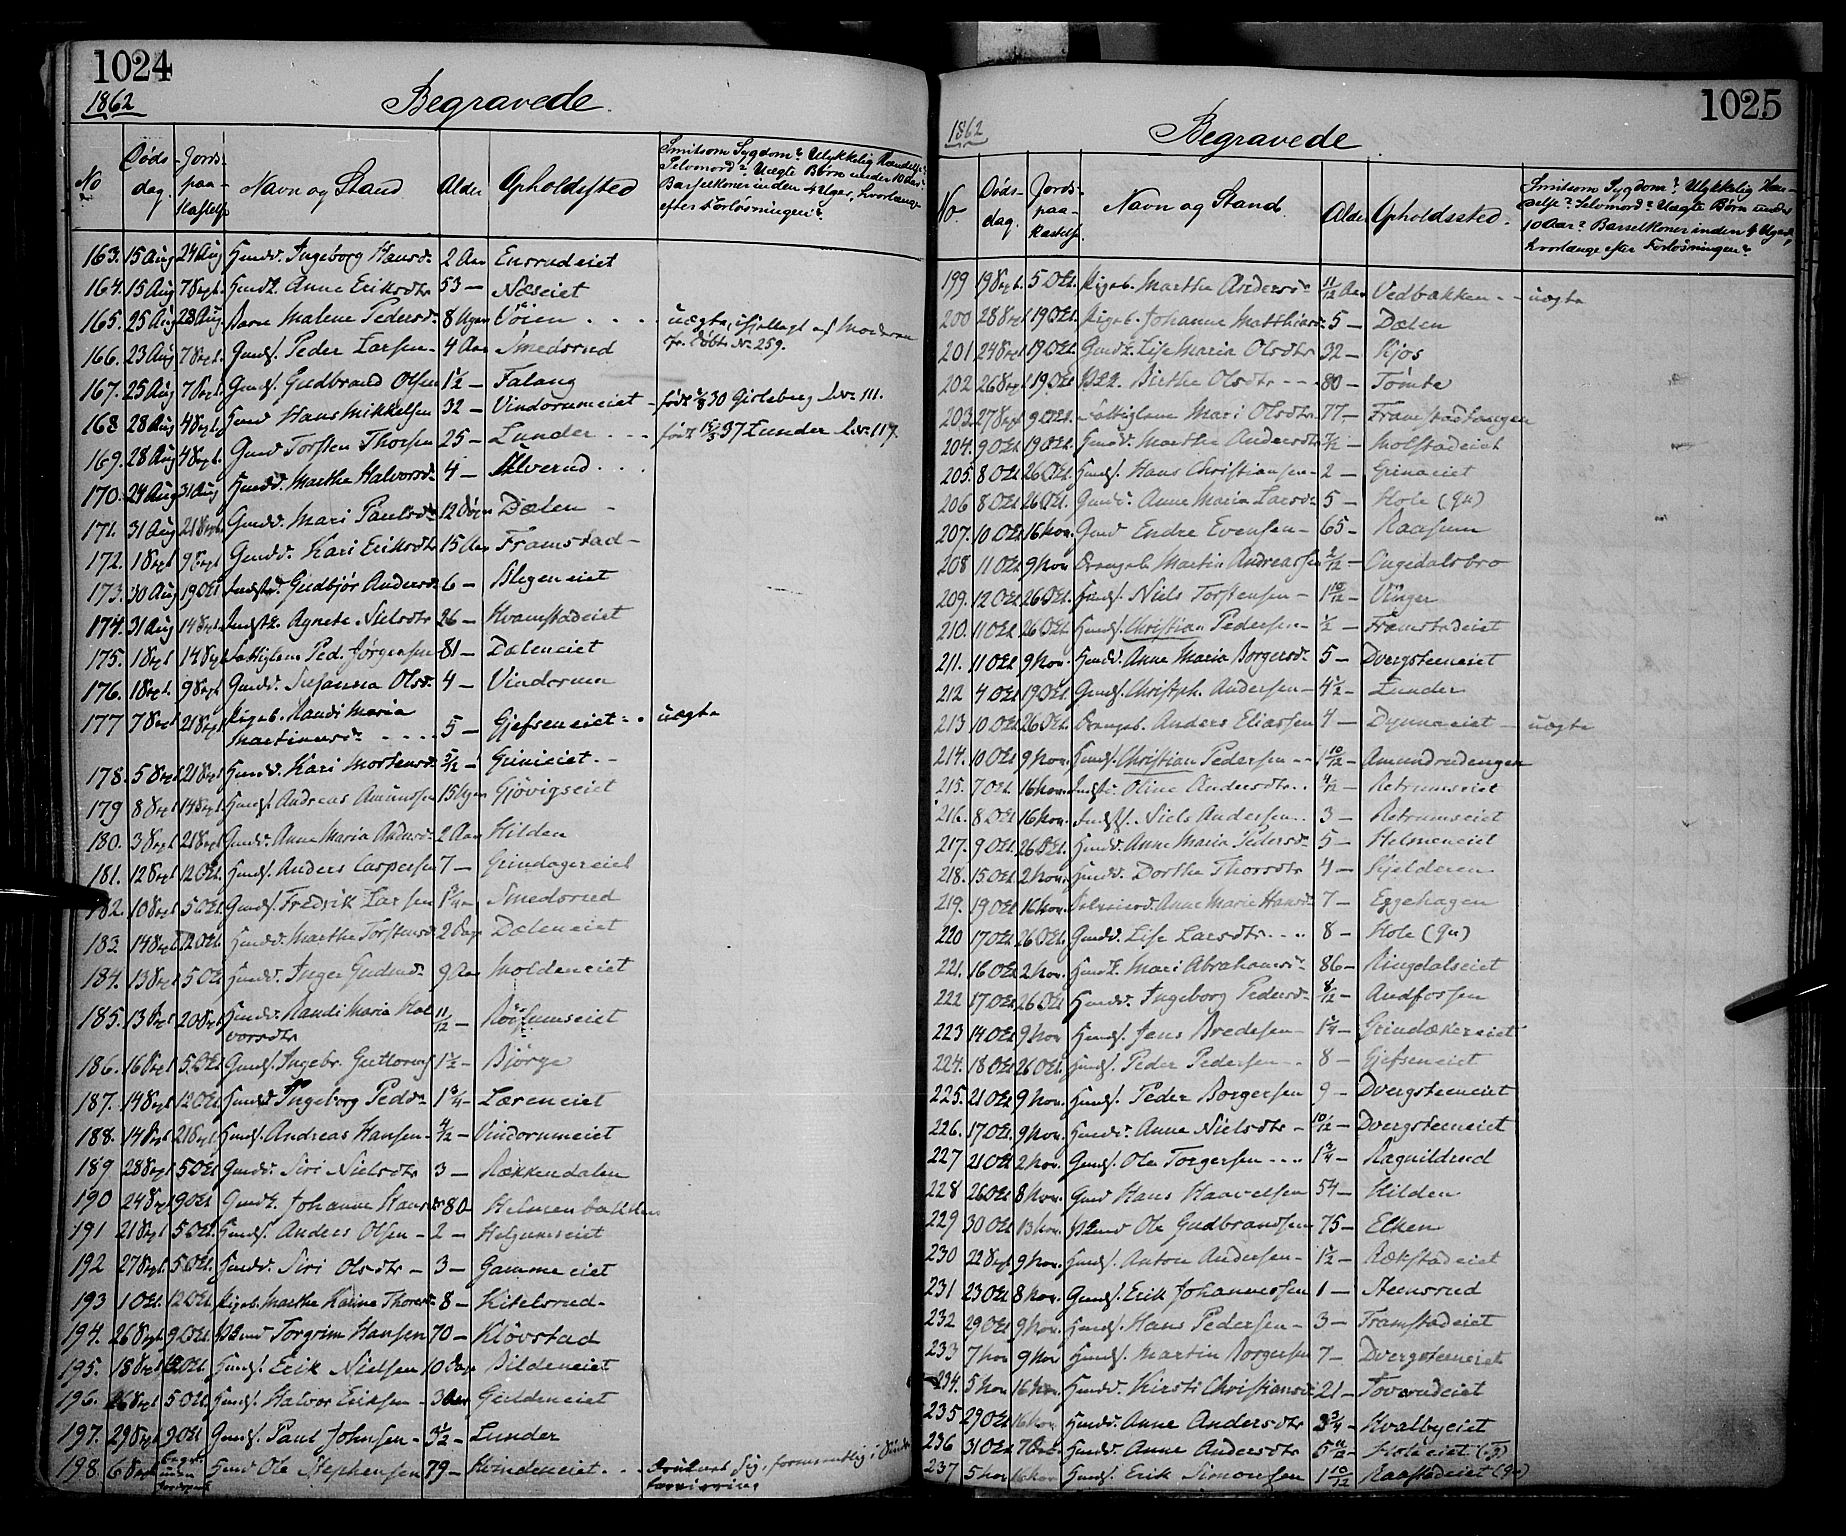 1024
1862
Begravede.
No
Døds-
dag.
Jords-
paa-
kastelse
Navn og Stand
Alder
Opholdssted
Smitsom Sygdom? Ulykkelig Hændelse?
Selvmord? Uægte Børn under 10 Aar?
Barselkoner inden 4 Uger, hvorlænge
efter Forløsningen?
163. 15 Aug 24 Aug Huusd. Ingeborg Hansd. 2 Aar Ensrudeiet
164. 15 Aug 7 Sept. Anne Eriksdtr 53 — Næseiet
165. 25 Aug 28 Aug. Barn Malene Pedersd. 8 Uger Vöien uægte, ihjellagt af Moderen
cfr. Döbte No 259.
166. 23 Aug 7 Sept. Gmds. Peder Larsen 4 Aar Smedsrud
167. 25 Aug 7 Sept. Gmds. Gudbrand Olsen 1½ — Falang
168 28 Aug 4 Sept. Hmd Hans Mikkelsen 32 — Vindorumeiet — født 30 Gisleberg No. 111.
169. 28 Aug 4 Sept. Gmd Torsten Thorsen 25 — Lunder født 37 Lunder No. 117.
170. 24 Aug 31 Aug Hmdd. Marthe Halvorsd. 4 — Ulverud
171. 31 Aug 21 Sept. Gmdd. Mari Paulsd. 12 Dæhlen
172. 1 Sept 9 Sept. Gmdd. Kari Eriksdtr 15 Aar Framstad —
173. 30 Aug 19 Oct Gudbjör Andersd. 6 — Blegeneiet
174. 31 Aug 14 Sept. Agnete Nielsdtr 26 — Hvamstadeiet
175. 1 Sept 14 Sept Fattiglem Ped. Jørgensen 81 — Dæleneiet
176. 1 Sept. 9 Sept Gmdd. Susanna Olsd. 4 — Vindorum
177 7 Sept 21 Sept Pigeb. Randi Maria
Martinusd. 5 — Gjefseneiet uægte
178. 5 Sept 21 Sept Hmdd. Kari Mortensd. 5/12 — Grinieiet
179 8 Sept 14 Sept Hmds. Andreas Amundsen 15 Uger Gjövigseiet
180. 3 Sept 21 Sept Gmdd. Anne Maria Andersd. 2 Aar Hilden
181. 12 Sept 12 Oct. Hmds. Anders Caspersen 7 — Grindagereiet
182. 10 Sept 5 Oct Gmds. Fredrik Larsen 1¾ — Smedsrud
183. 14 Sept 12 Oct Hmdd. Marthe Torstensd. 2 Dage Dæleneiet
184. 13 Sept 5 Oct Hmdd. Inger Gudmd. 9 Aar Moldeneiet
185. 13 Sept 20 Sept Hmdd. Randi Maria Hal
vorsdtr 11/12 — Röisumseiet
186. 16 Sept 5 Oct Gmds. Ingebr. Guttorms 1½ — Bjørge
187. 14 Sept 12 Oct Hmdd Ingeborg Pedd. 1¾ — Læreneiet
188. 14 Sept 21 Sept Hmds. Andreas Hansen 4/12 — Vindorumeiet
189 28 Sept 5 Oct Gmdd. Siri Nielsdtr 3 — Rækkendalen
190 24 Sept 19 Oct Johanne Hansd. 80 — Helmenbakken
191 21 Sept 5 Oct Hmds. Anders Olsen 2 — Helgumseiet
192 27 Sept. 5 Oct. Hmdd. Siri Olsdtr 3 — Gammeeiet
193 1 Oct. 12 Oct. Pigeb. Marthe Karine Thoresd. 8 — Kitelsrud
194. 26 Sept 9 Oct. Torgrim Hansen 70 — Klövstad
195. 18 Sept 12 Oct. Hmds. Erik Nielsen 10 Dage Bildeneiet
196. 26 Sept 5 Oct Hmds. Halvor Eriksen 3 Aar Guldeneiet
197. 29 Sept 9 Oct Gmds. Paul Johnsen 3½ — Lunder
198. 6 Sept Begr.
uden
Jordspaak. Hmd Ole Stephensen 79 — Hvindeneiet Druknet sig, formentlig i Sinds-
forvirring
1025
1862
Begravede
No
Døds-
dag.
Jords-
paa-
kastelse
Navn og Stand.
Alder
Opholdssted.
Smitsom Sygdom? Ulykkelig Hæn-
delse? Selvmord? Uægte Børn under
10 Aar? Barselkoner inden 4 Uger,
hvorlænge efter Forløsningen?
199 19 Sept. 5 Oct. Pigeb. Marthe Andersd. 11/12 Aar Vedbakken uægte
200 28 Sept 19 Oct. Pigeb. Johanne Matthiasd. 5 — Dælen
201 24 Sept 19 Oct. Lise Maria Olsdtr 32 — Kjos
202 26 Sept 19 Oct. Birthe Olsdtr 80 — Tömte
203. 27 Sept 9 Oct. Fattiglem Mari Olsdtr 77 — Framstadtangen
204. 9 Oct 19 Oct. Hmdd. Marthe Andersdtr 7/12 — Molstadeiet
205. 8 Oct 26 Oct. Hmds. Hans Christiansen 2 — Grinaeiet
206 8 Oct 26 Oct. Gmdd. Anne Maria Larsd. 5 — Hole (gn)
207. 10 Oct 16 Nov. Gmd Endre Evensen 65 — Raasum
208 11 Oct 9 Nov Drengeb. Martin Andreassen 2/12 — Ougedalsbro
209. 12 Oct 26 Oct. Niels Torstensen 1 10/12 — Vinger
210. 11 Oct 26 Oct. Hmds. Christian Pedersen ½ — Framstadeiet
211. 11 Oct 9 Nov. Hmdd. Anne Maria Borgersd. 5 — Dvergsteeneiet
212 4 Oct 19 Oct Gmds. Christph. Andersen 4½ — Lunder
213 10 Oct 26 Oct. Drengeb. Anders Eliassen 4 — Dynnaeiet — uægte
214. 10 Oct 9 Nov. Hmds. Christian Pedersen 1 10/12 — Amundrudengen
215. 7 Oct. 16 Nov. Oline Andersdtr 4/12 — Retrumseiet
216. 8 Oct 16 Nov. Niels Andersen 3 — Retrumseiet
217. 9 Oct 26 Oct. Hmdd. Anne Maria Pedersd. 5 — Helmeneiet
218. 15 Oct 2 Nov. Hmdd. Dorthe Thorsdtr 4 — Skjelderen
219. 19 Oct 16 Nov. Anne Marie Hansd. 7 — Eggehagen
220 17 Oct 26 Oct. Gmdd. Lise Larsdtr 8 — Hole (gn)
221. 16 Oct 2 Nov. Mari Abrahamsd. 86 — Ringdalseiet
222 17 Oct 26 Oct Hmdd. Ingeborg Pedersd. 8/12 — Andfossen
223 14 Oct 9 Nov Hmds. Jens Bredesen 1¼ — Grindakereiet
224. 18 Oct 26 Oct. Hmds. Peder Pedersen 8 — Gjefseneiet
225. 21 Oct 9 Nov. Hmds. Peder Borgersen 9 — Dvergsteeneiet
226. 17 Oct. 9 Nov. Hmdd. Anne Nielsdtr 10/12 — Dvergsteeneiet
227 21 Oct 2 Nov. Gmds. Ole Torgersen 1¾ — Ragnildrud
228 26 Oct 8 Nov. Gmd Hans Haavelsen 54 — Hilden
229 30 Oct 13 Nov. Ole Gudbrandsen 75 — Elken
230 22 Sept 9 Nov. Hmds. Anton Andersen 1½ — Rækstadeiet
231 23 Oct 8 Nov. Gmds. Erik Johannessen 1 — Steensrud
232 29 Oct 9 Nov. Hmds. Hans Pedersen 3 — Framstadeiet
233 7 Nov 9 Nov Hmds. Martin Borgersen 7 — Dvergsteeneiet
234. 5 Nov 16 Nov. Hmdd. Kirsti Christiansd. 21 — Toverudeiet
235 29 Oct 16 Nov. Hmdd. Anne Andersdtr 3¾ — Hvalbyeiet
236 31 Oct 7 Dec. Hmdd. Anne Andersdtr 5 11/12 — Holeeiet (T)
237 5 Nov 16 Nov Hmds. Erik Simonsen 1 10/12 — Raastadeiet (gn)